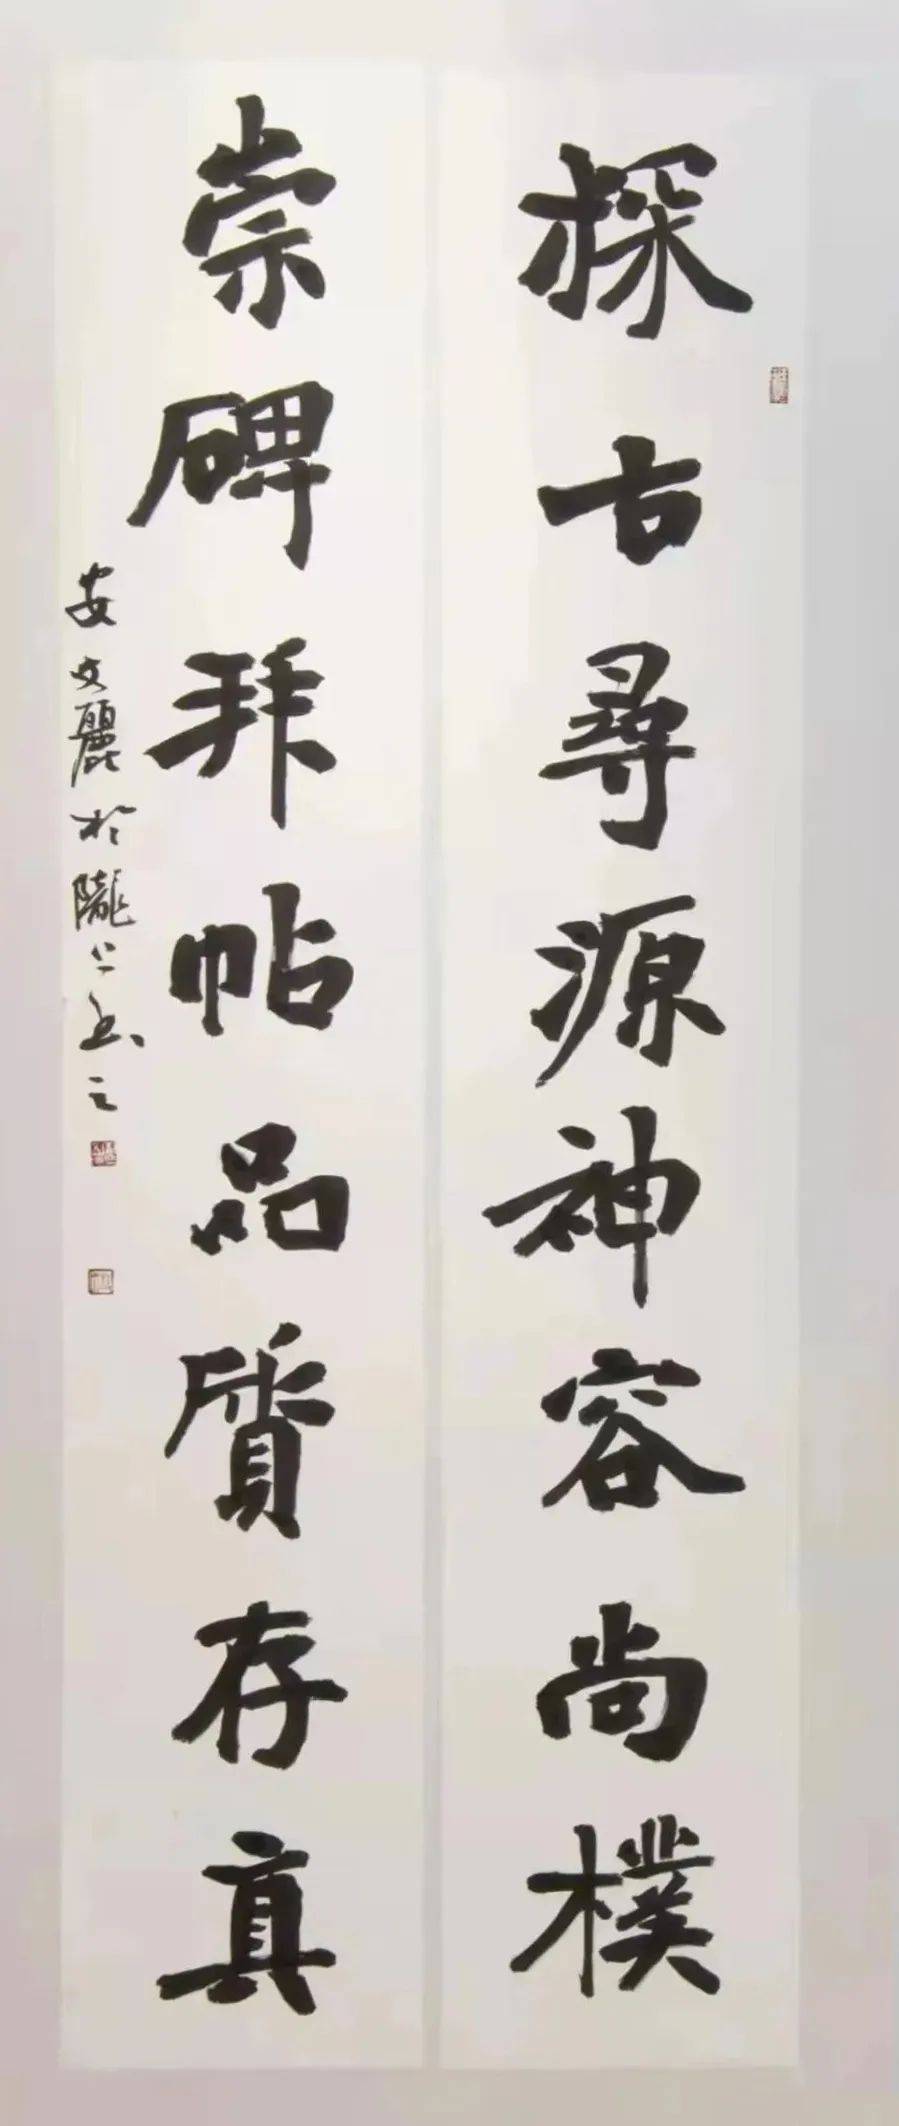 探古尋源神容尚樸
崇碑拜帖品質存真
安文麗於隴上書之